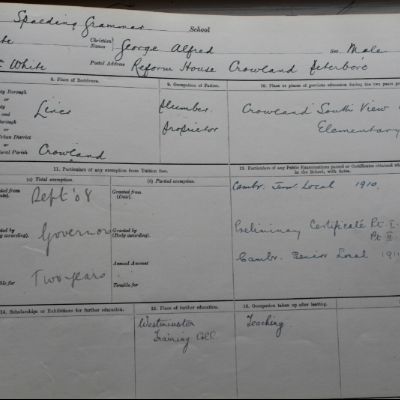 Spalding Grammar School
Christian Names George Alfred Sex Male
White Postal Address Reform House Crowland Peterboro
8. Place of Residence.
9. Occupation of Father.
10. Place or places of previous education during the two years
or
Lincs
Plumber
Crowland South View
or
Proprietor
Elementary
Urban District
or
Rural Parish Crowland
11. Particulars of any exemption from Tuition fees.
12. Particulars of any Public Examinations passed or Certificates obtained
in the School, with dates.
(a) Total exemption.
(b) Partial exemption.
Camb. Jun. Local 1910.
Sept '08
Granted from
(Date).
Governors
Granted by
(Body awarding).
Preliminary Certificate Pt I.
Pt II.
Camb. Senior Local
Annual Amount
Two years
Tenable for
14. Scholarships or Exhibitions for further education.
15. Place of further education.
16. Occupation taken up after leaving.
Westminster
Training Coll.
Teaching